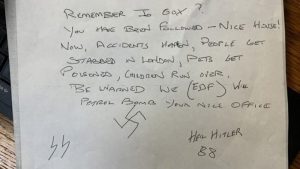 REMEMBER JO COX?
YOU HAVE BEEN FOLLOWED – NICE HOUSE!
NOW, ACCIDENTS HAPPEN, PEOPLE GET
STABBED IN LONDON, PETS GET
POISONED, CHILDREN RUN OVER.
BE WARNED WE (EDF) WILL
PETROL BOMB YOUR NICE OFFICE
HITLER
88